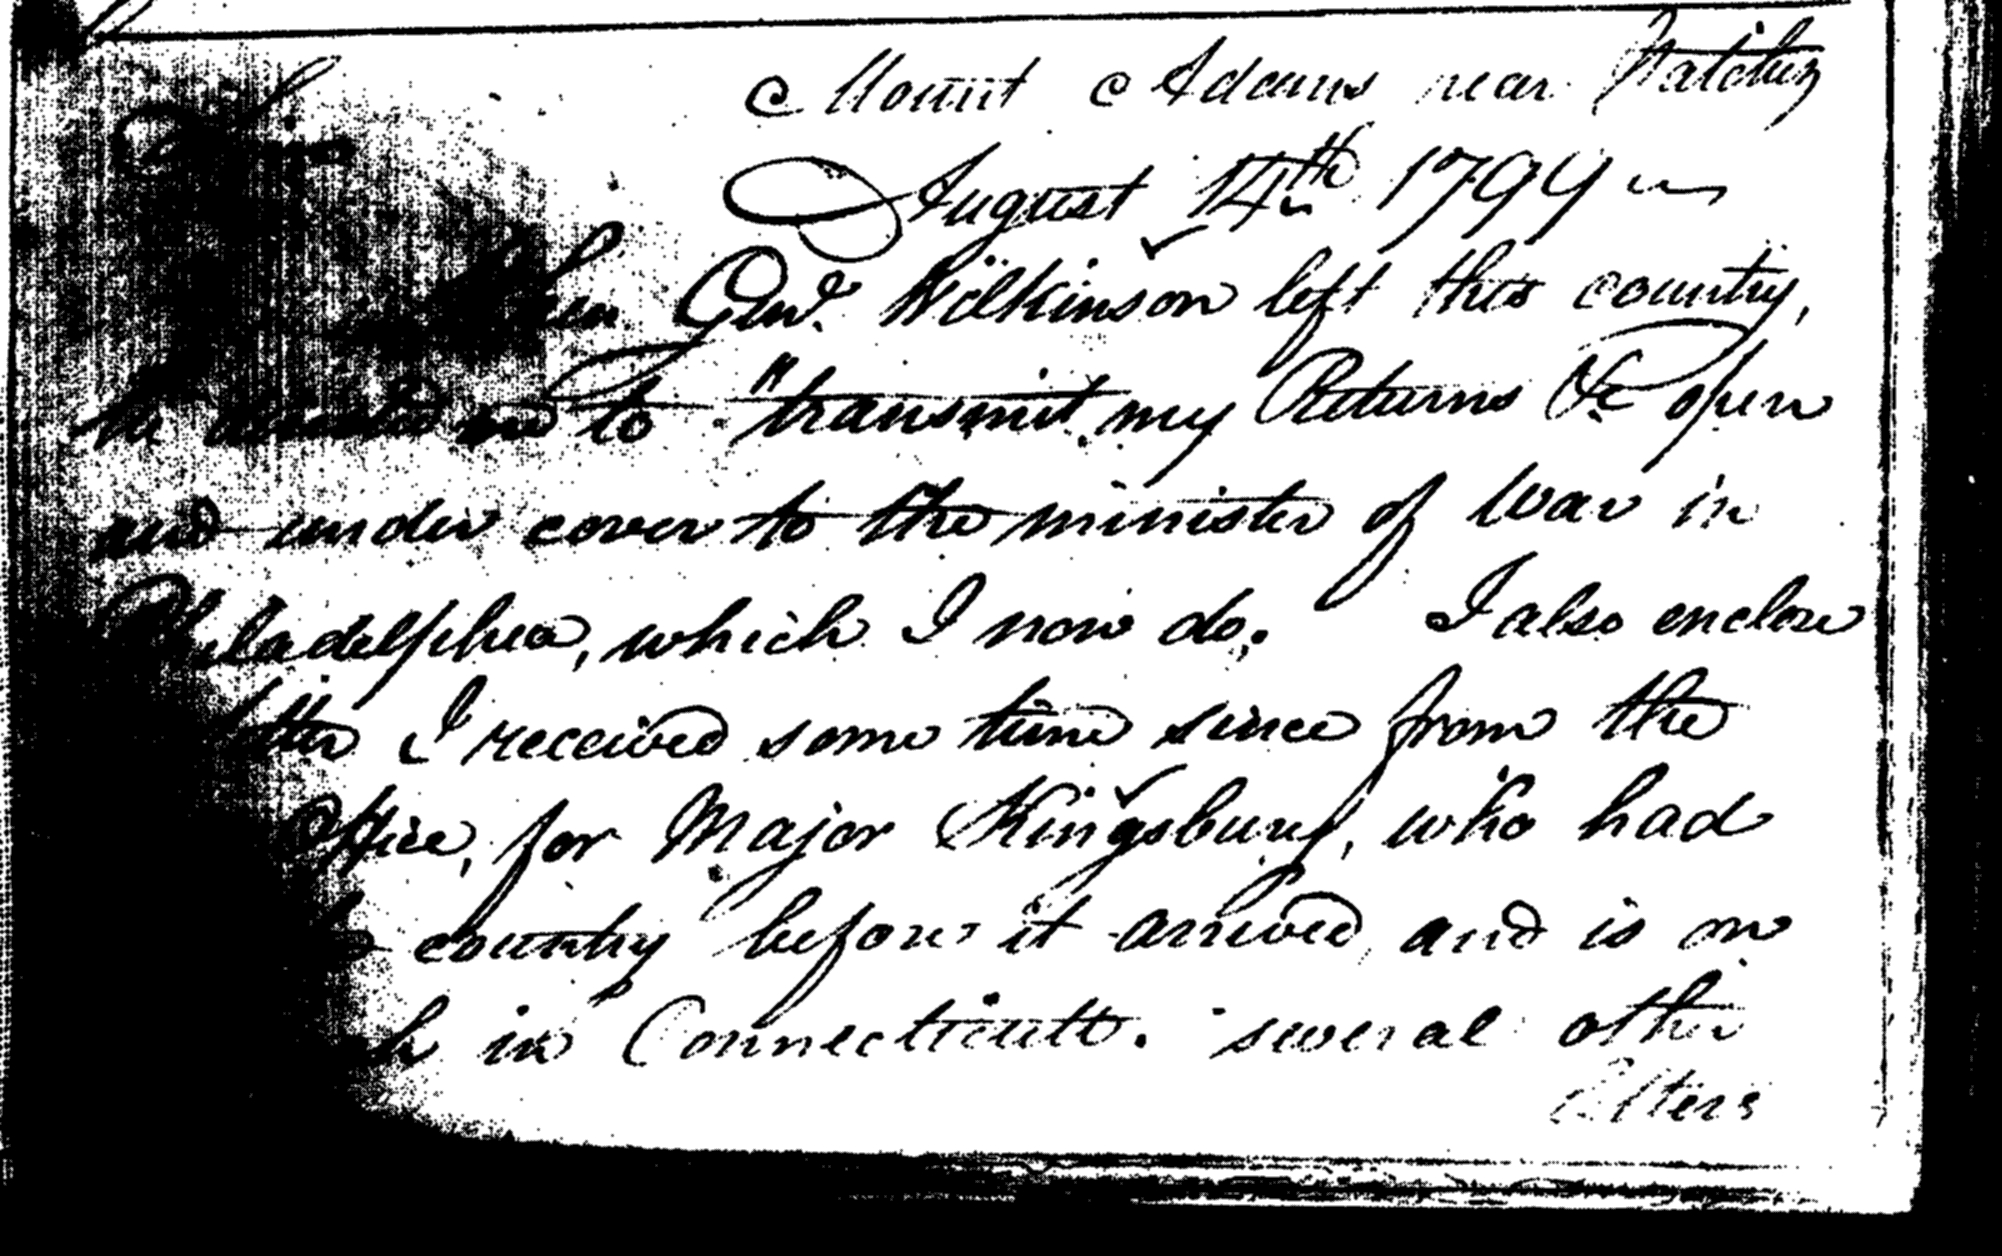 Mount Adams near Natchez
Sir
August 14th 1799
When Genl. Wilkinson left this country,
he directed me to "transmit my Returns &c open
and under cover to the minister of War in
Philadelphia, which I now do; I also enclose
letter I received some time since from the
office, for Major Kingsbury, who had
country before it arrived, and is on
in Connecticutt. several other
letters